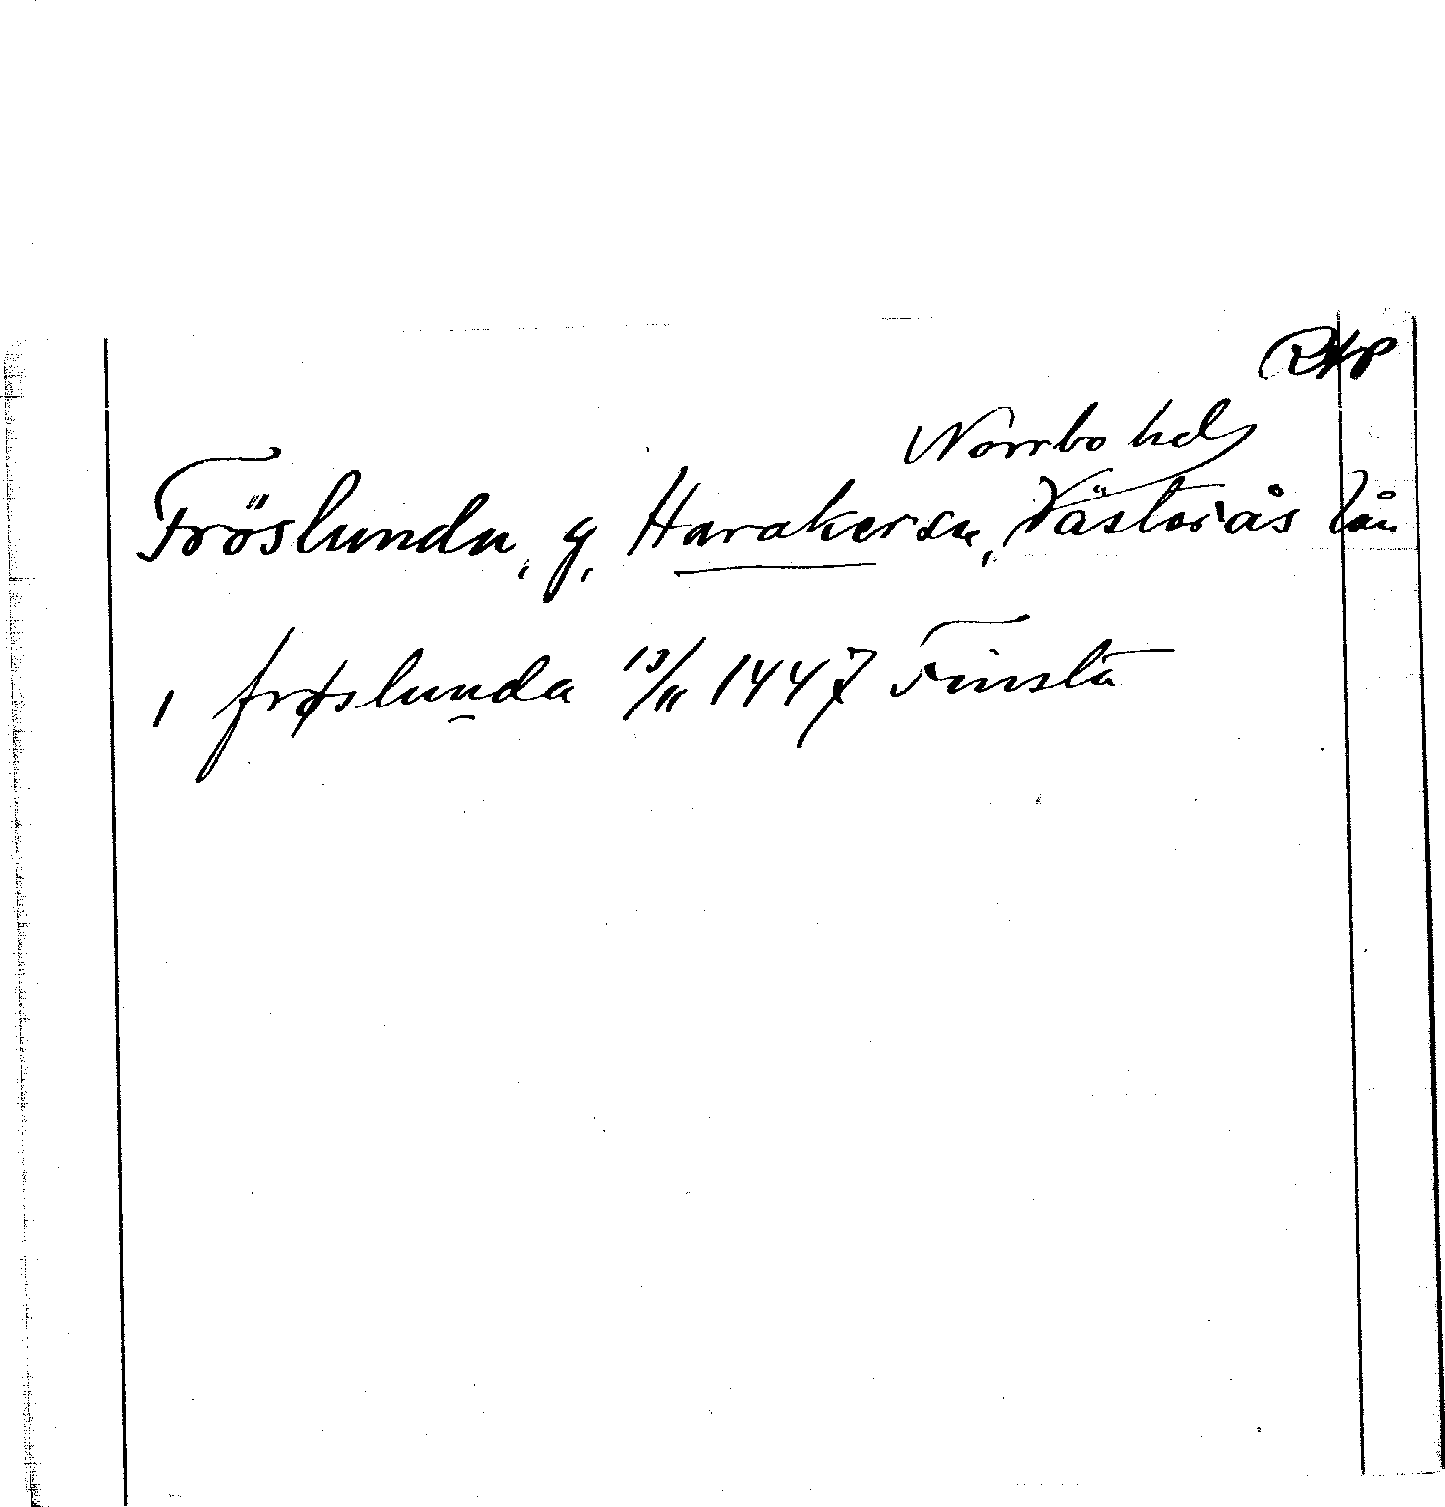 RAp
Norrbo hd
Fröslunda, g, Harakers sn, Västerås län
1 frøslunda 13/11 1447 Finsta